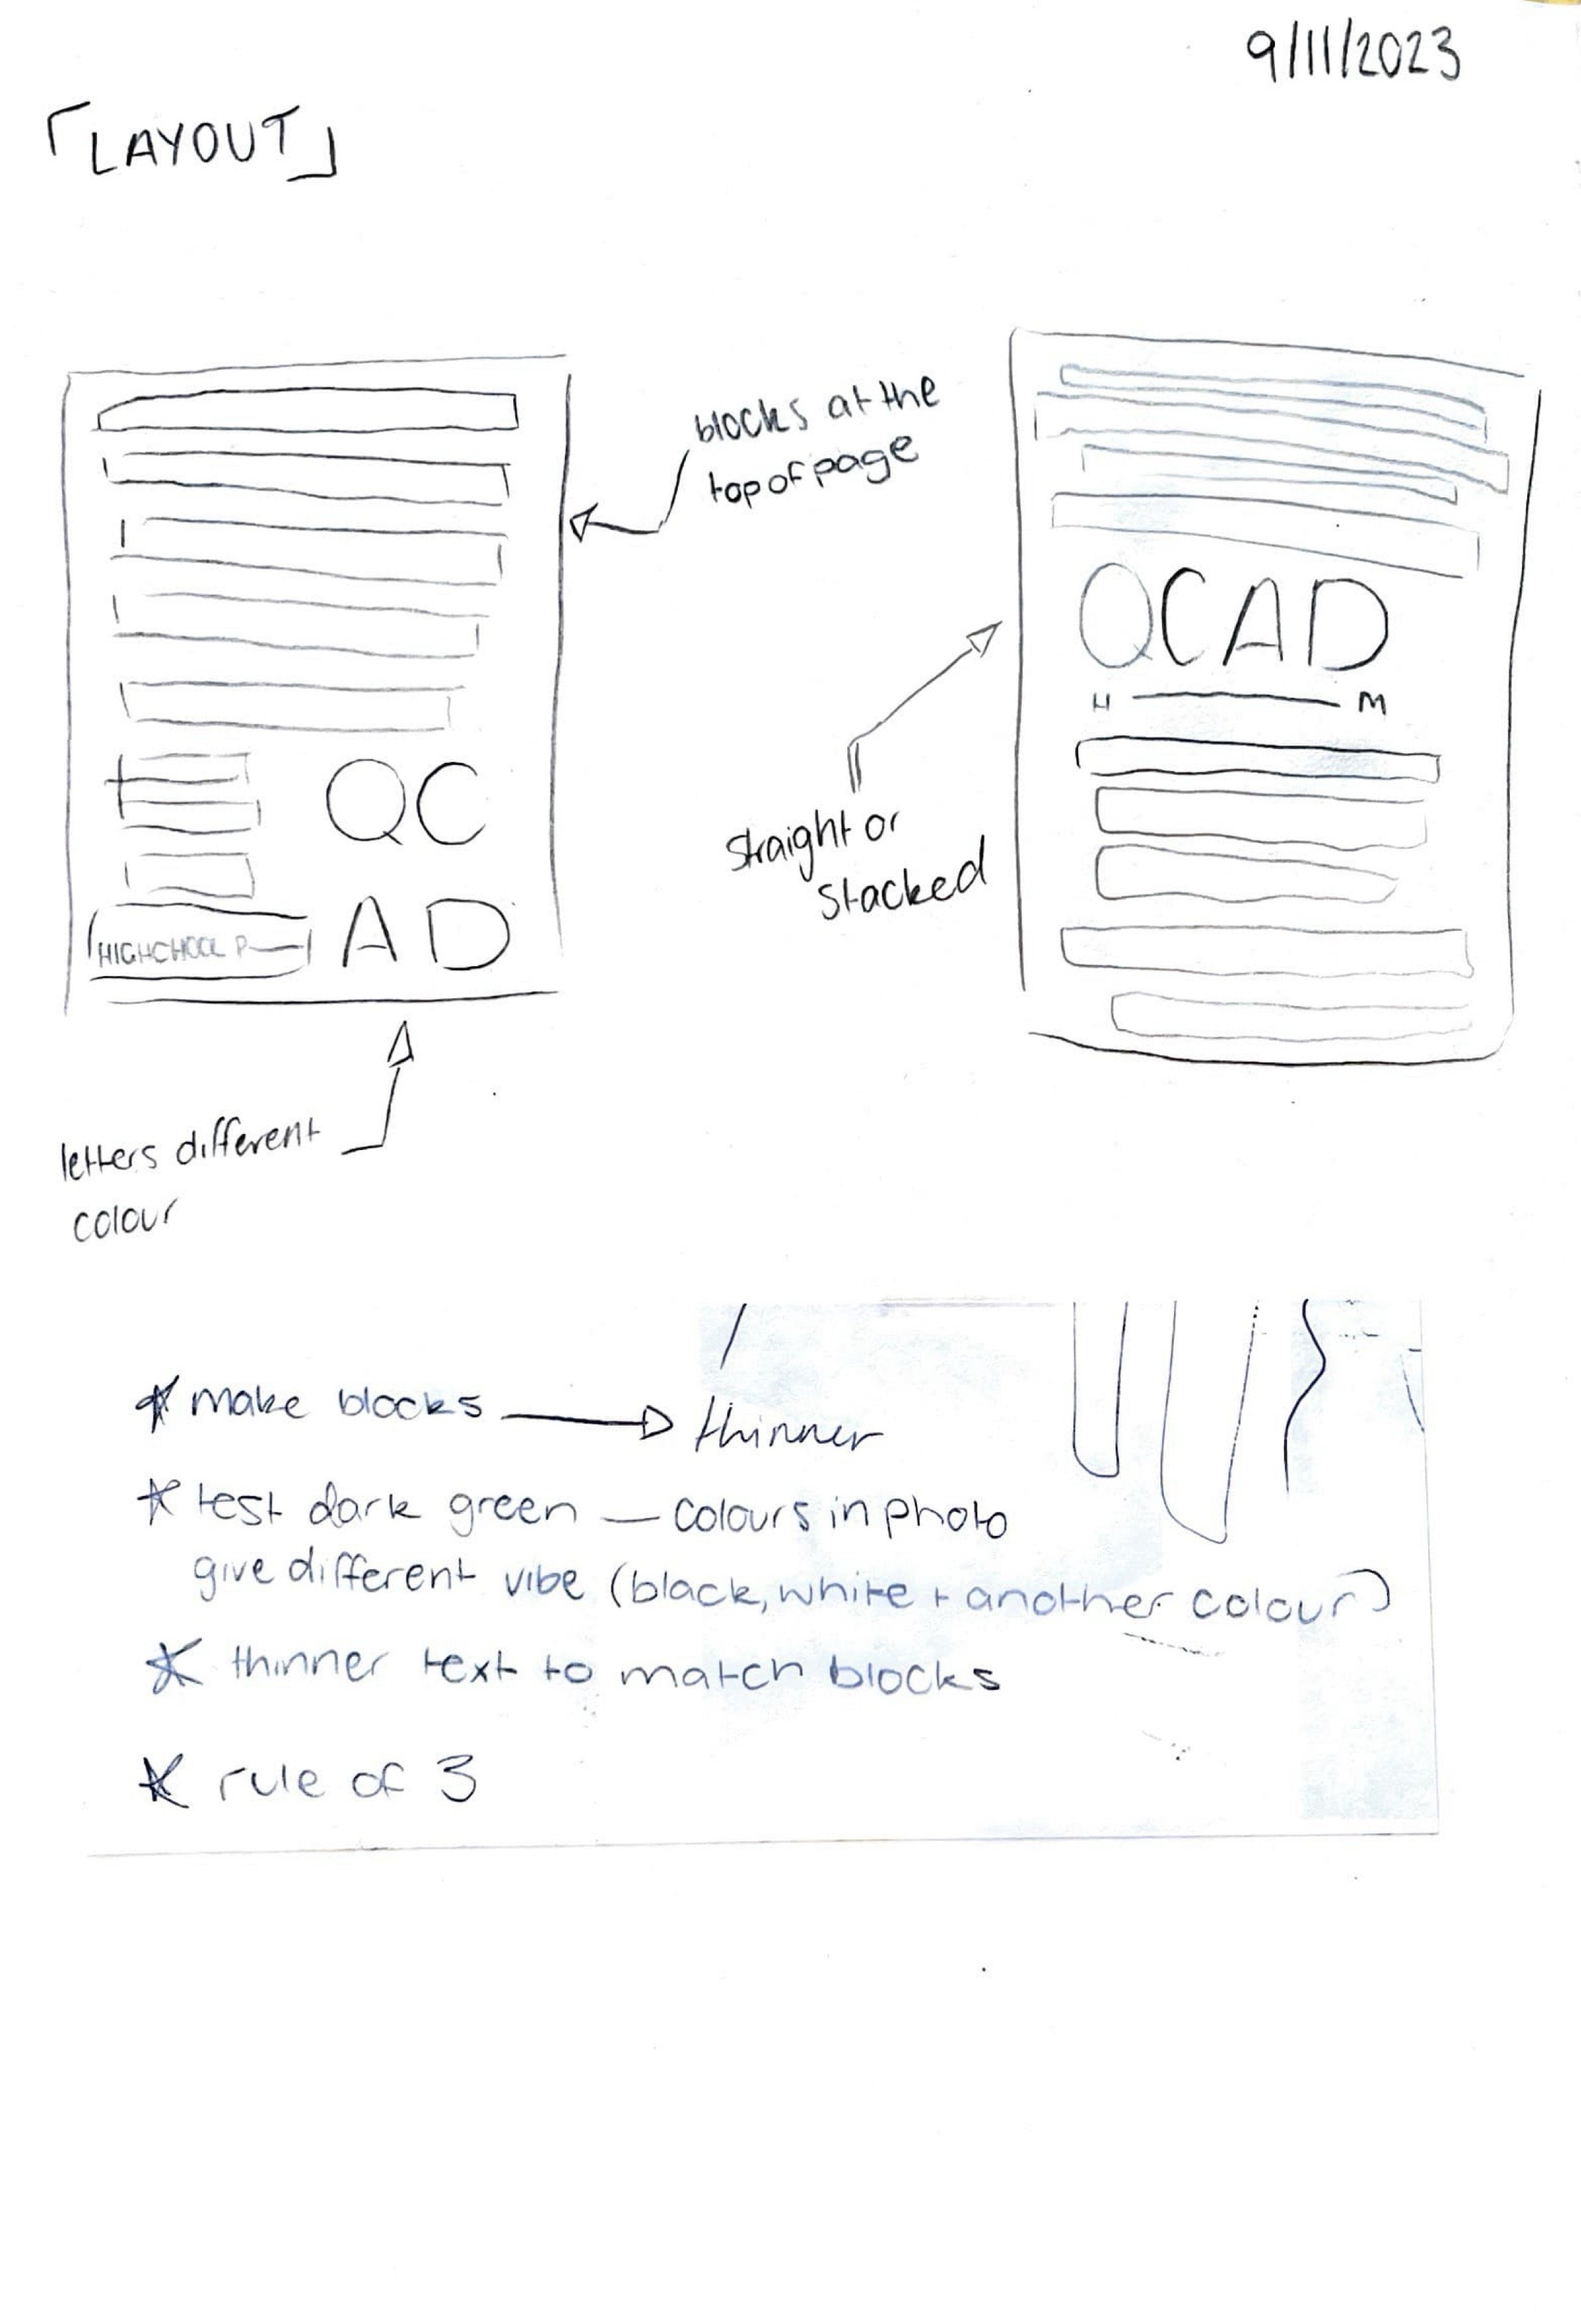 9/11/2023
「LAYOUT」
blocks at the
top of page
QC
AD
HIGHCHOOL P
QCAD
H M
straight or
stacked
letters different
colour
* make blocks → thinner
* test dark green — colours in photo
give different vibe (black, white + another colour)
* thinner text to match blocks
* rule of 3